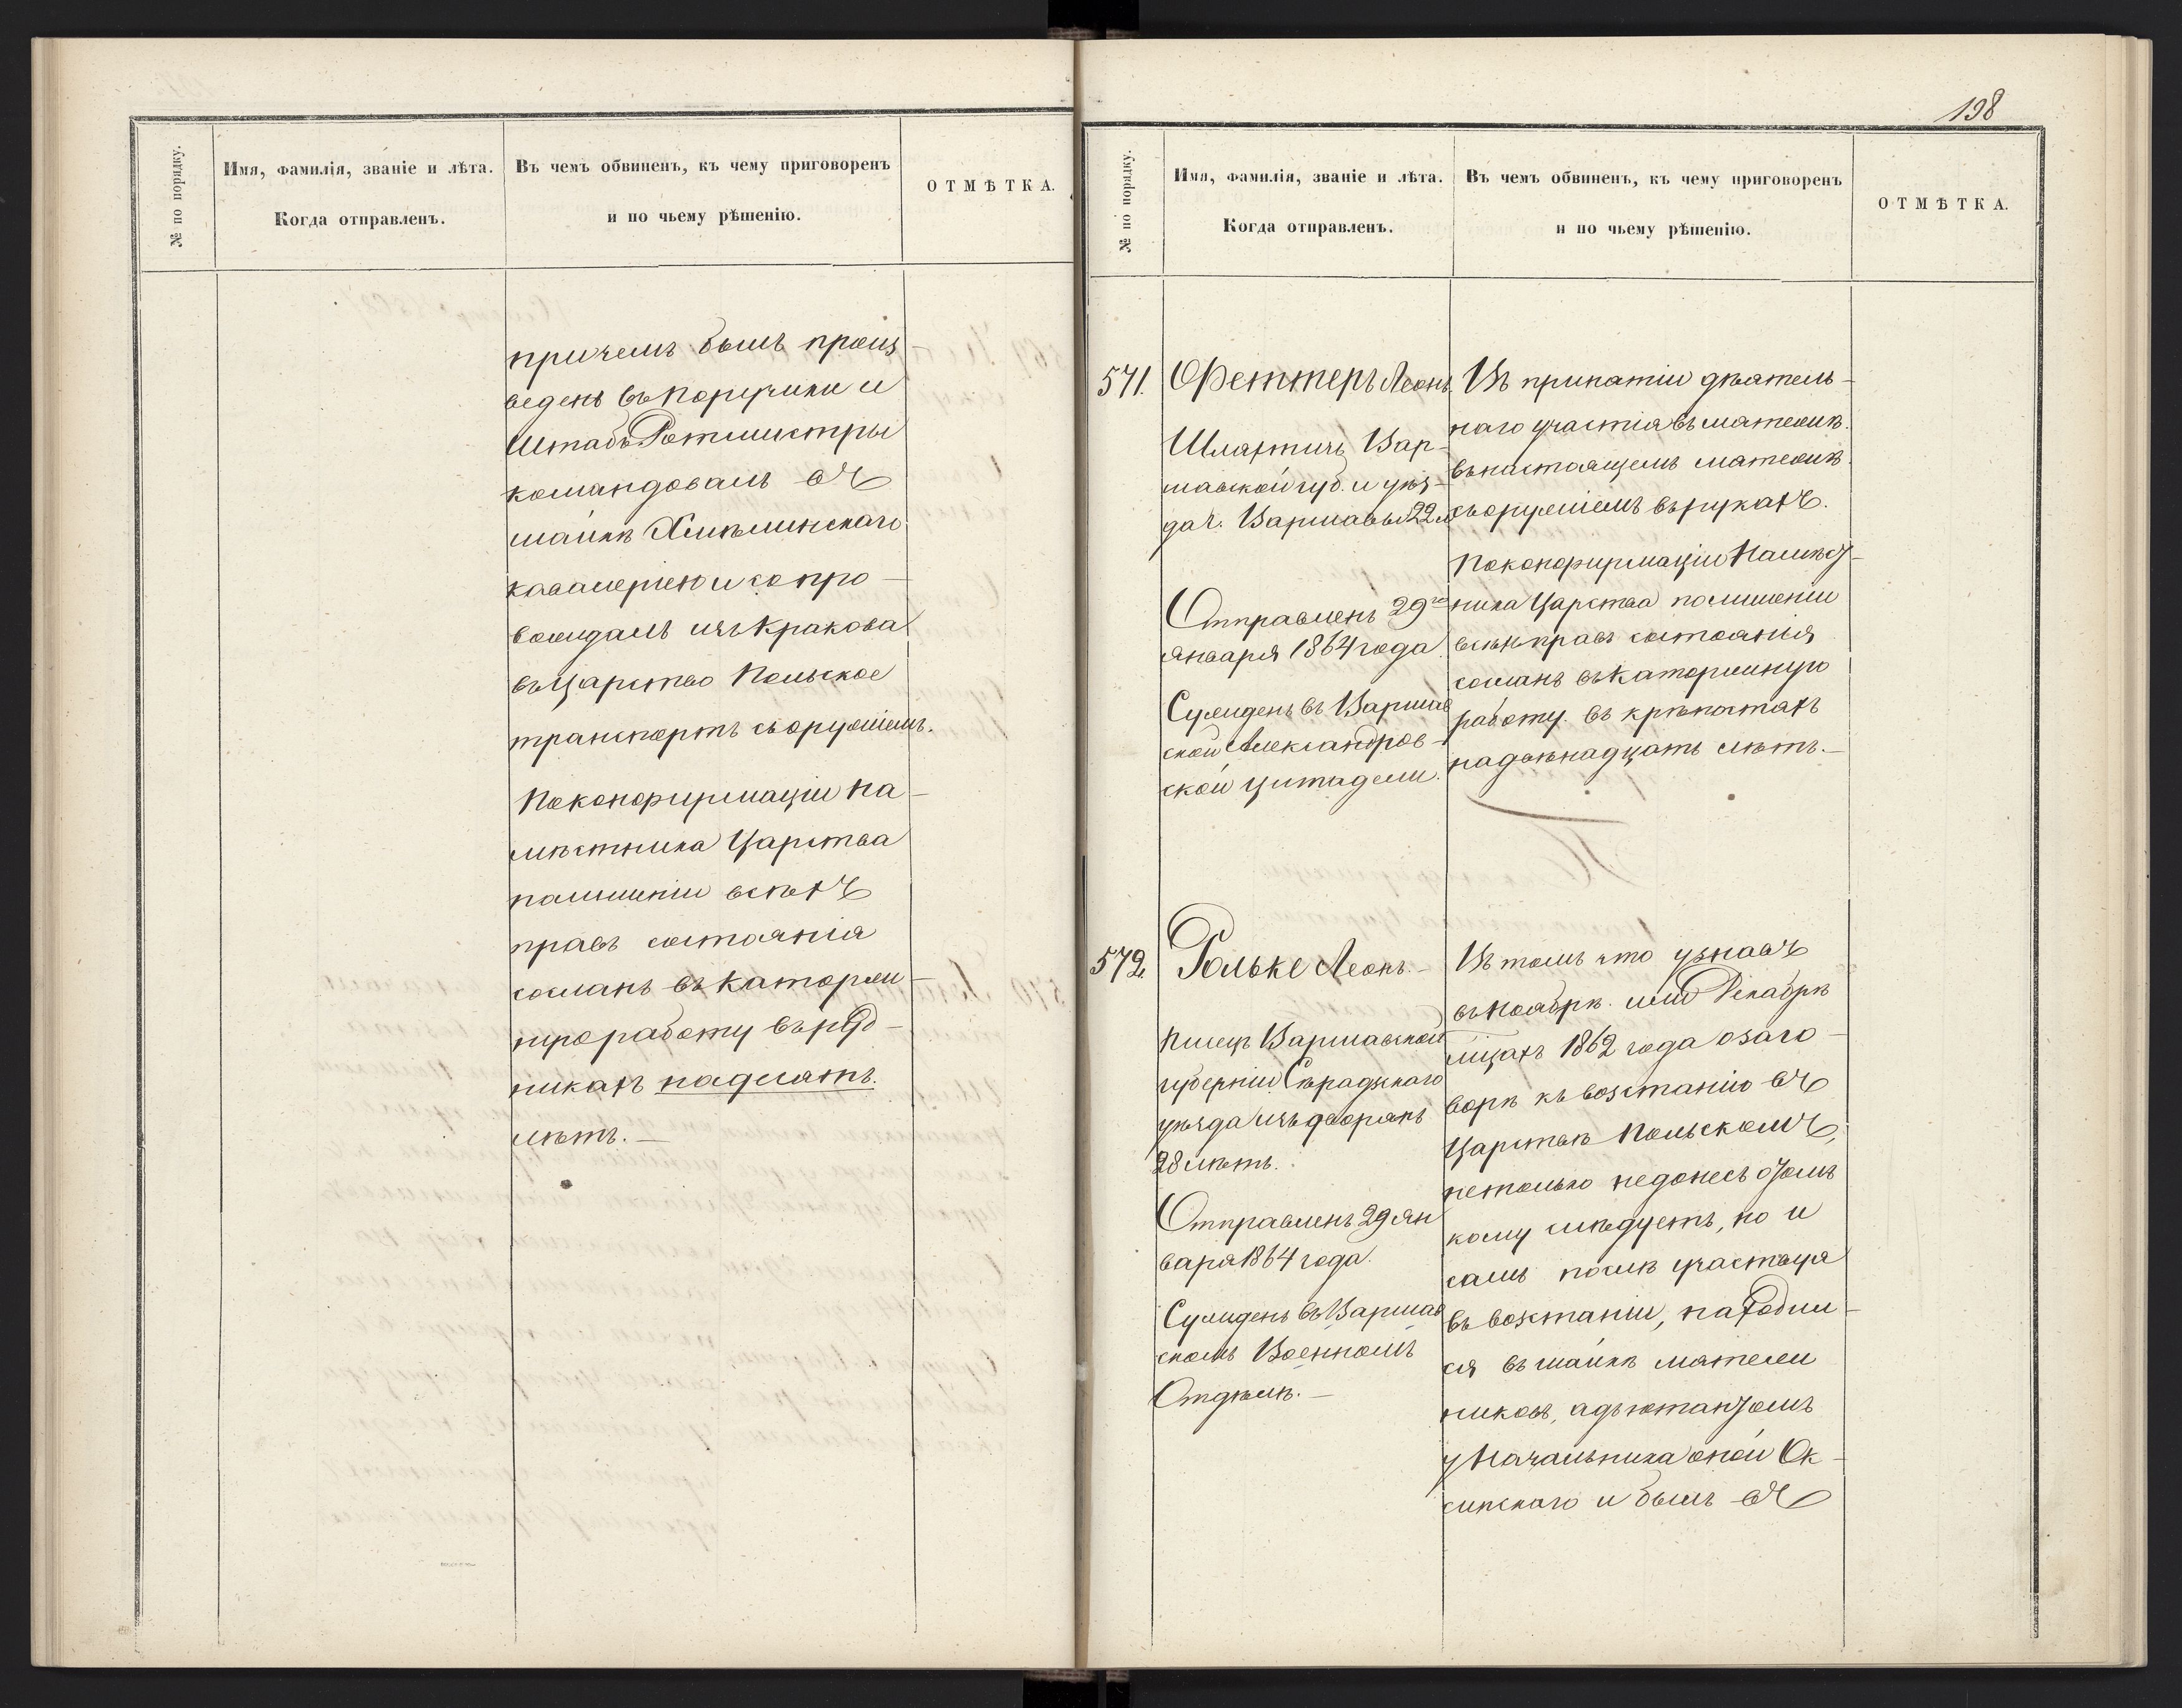 № по порядку.
Имя, фамилія, званіе и лѣта.
Когда отправленъ.
Въ чемъ обвиненъ, къ чему приговоренъ
и по чьему рѣшенію.
ОТМѢТКА.
причемъ былъ произ-
веденъ въ поручики и
Штабъ Ротмистры
командовалъ въ
шайкѣ Хмѣлинскаго
кавалеріею и сопро-
вождалъ изъ Кракова
въ Царство Польское
транспортъ съ оружіемъ.
По конфирмаціи На-
мѣстника Царства
по лишеніи всѣхъ
правъ состоянія
сосланъ въ каторж-
ную работу въ руд-
никахъ на десять
лѣтъ.—
198
№ по порядку.
Имя, фамилія, званіе и лѣта.
Когда отправленъ.
Въ чемъ обвиненъ, къ чему приговоренъ
и по чьему рѣшенію.
ОТМѢТКА.
571.
Феттеръ Леонъ.
Шляхтичъ Вар-
шавской губ. и уѣз-
да г. Варшавы 22 л
Отправленъ 29го
Января 1864 года.
Сужденъ въ Варшав
ской Александров-
ской цитадели.
Въ принятіи дѣятель-
наго участія въ мятежѣ.
въ настоящемъ мятежѣ.
съ оружіемъ въ рукахъ.
По конфирмаціи Намѣст-
ника Царства по лишеніи
всѣхъ правъ состоянія
сосланъ въ каторжную
работу въ крѣпостяхъ
на двѣнадцать лѣтъ.—
572.
Рольке Леонъ.—
Писецъ Варшавской
губерніи Сѣрадзскаго
уѣзда изъ дворянъ
28 лѣтъ.
Отправленъ 29 Ян
варя 1864 года.
Сужденъ въ Варшав
скомъ Военномъ
Отдѣлѣ.—
Въ томъ что узнавъ
въ Ноябрѣ или Декабрѣ
м̃цахъ 1862 года о заго-
ворѣ къ возстанію въ
Царствѣ Польскомъ,
не только не донесъ о томъ
кому слѣдуетъ, но и
самъ послѣ участвуя
въ возстаніи, находил-
ся въ шайкѣ мятеж
никовъ, адъютантомъ
у Начальника оной Ок-
синскаго и былъ въ